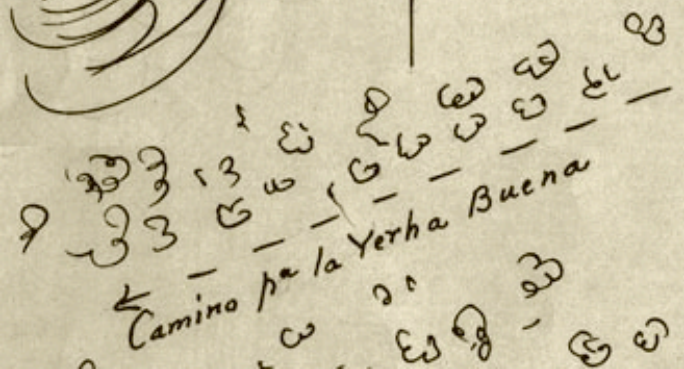 Camino pª la Yerba Buena